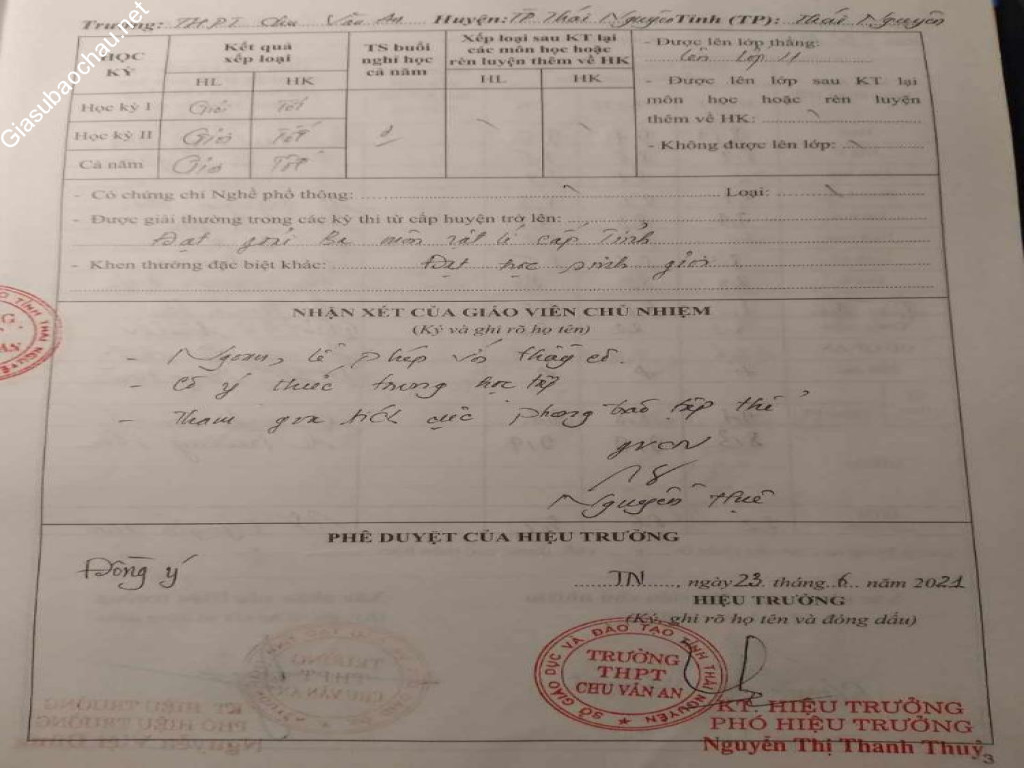 Giasubaochau.net
Trường: THPT Chu Văn An Huyện: TP Thái Nguyên Tỉnh (TP): Thái Nguyên
HỌC KỲ
Kết quả xếp loại
HL HK
TS buổi nghỉ học cả năm
Xếp loại sau KT lại các môn học hoặc rèn luyện thêm về HK
HL HK
Học kỳ I Giỏi Tốt
Học kỳ II Giỏi Tốt 2 \ \
Cả năm Giỏi Tốt
- Được lên lớp thẳng:
Lên lớp 11
- Được lên lớp sau KT lại
môn học hoặc rèn luyện
thêm về HK: \
- Không được lên lớp: \
- Có chứng chỉ Nghề phổ thông: \ Loại: \
- Được giải thưởng trong các kỳ thi từ cấp huyện trở lên:
Đạt giải Ba môn Vật lí cấp Tỉnh
- Khen thưởng đặc biệt khác: Đạt học sinh giỏi
NHẬN XÉT CỦA GIÁO VIÊN CHỦ NHIỆM
(Ký và ghi rõ họ tên)
- Ngoan, lễ phép với thầy cô.
- Có ý thức trong học tập
- Tham gia tích cực phong trào tập thể
GVCN
Nguyễn Huê
PHÊ DUYỆT CỦA HIỆU TRƯỞNG
Đồng ý
TN, ngày 23 tháng 6 năm 2021
HIỆU TRƯỞNG
(Ký, ghi rõ họ tên và đóng dấu)
SỞ GIÁO DỤC VÀ ĐÀO TẠO TỈNH THÁI NGUYÊN
TRƯỜNG
THPT
CHU VĂN AN
KT. HIỆU TRƯỞNG
PHÓ HIỆU TRƯỞNG
Nguyễn Thị Thanh Thuỷ
3